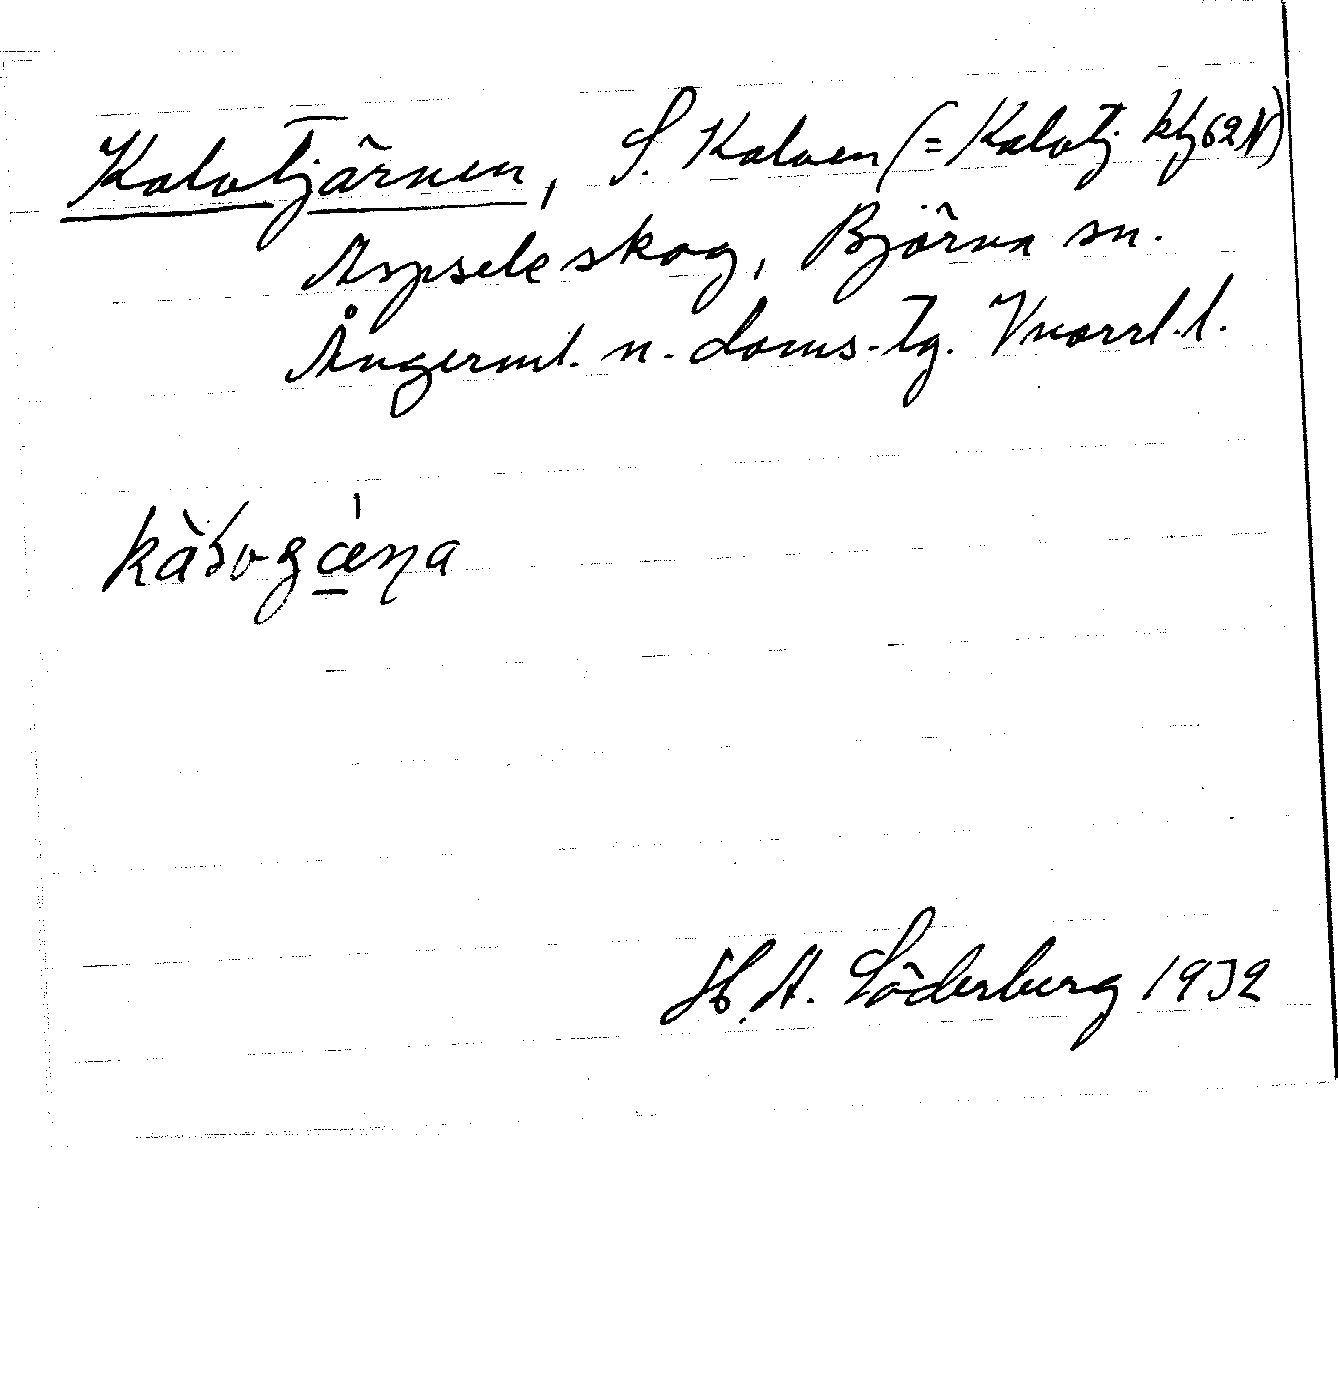 Kalvtjärnen, S. Kalven (= Kalvtj. kbl 62 N)
Aspsele skog, Björna sn.
Ångerml. n. doms-lg. Vnorrl. l.
H. A. Söderberg 1932